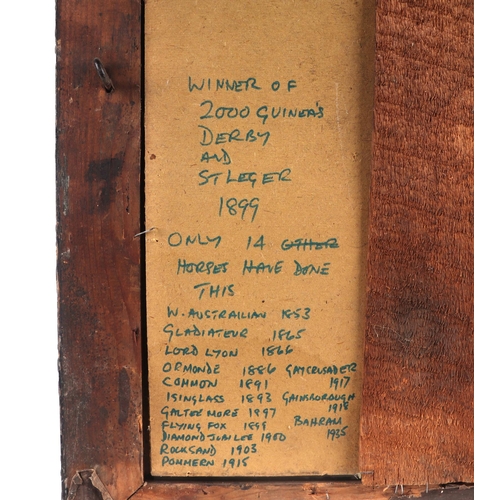 WINNER OF
2000 GUINEA'S
DERBY
AND
ST LEGER
1899
ONLY 14 OTHER
HORSES HAVE DONE
THIS
W. AUSTRAILIAN 1853
GLADIATEUR 1865
LORD LYON 1866
ORMONDE 1886 GAYCRUSADER
COMMON 1891 1917
ISINGLASS 1893 GAINSBOROUGH
GALTEEMORE 1897 1918
FLYING FOX 1899 BAHRAM
DIAMOND JUBILEE 1900 1935
ROCKSAND 1903
POMMERN 1915